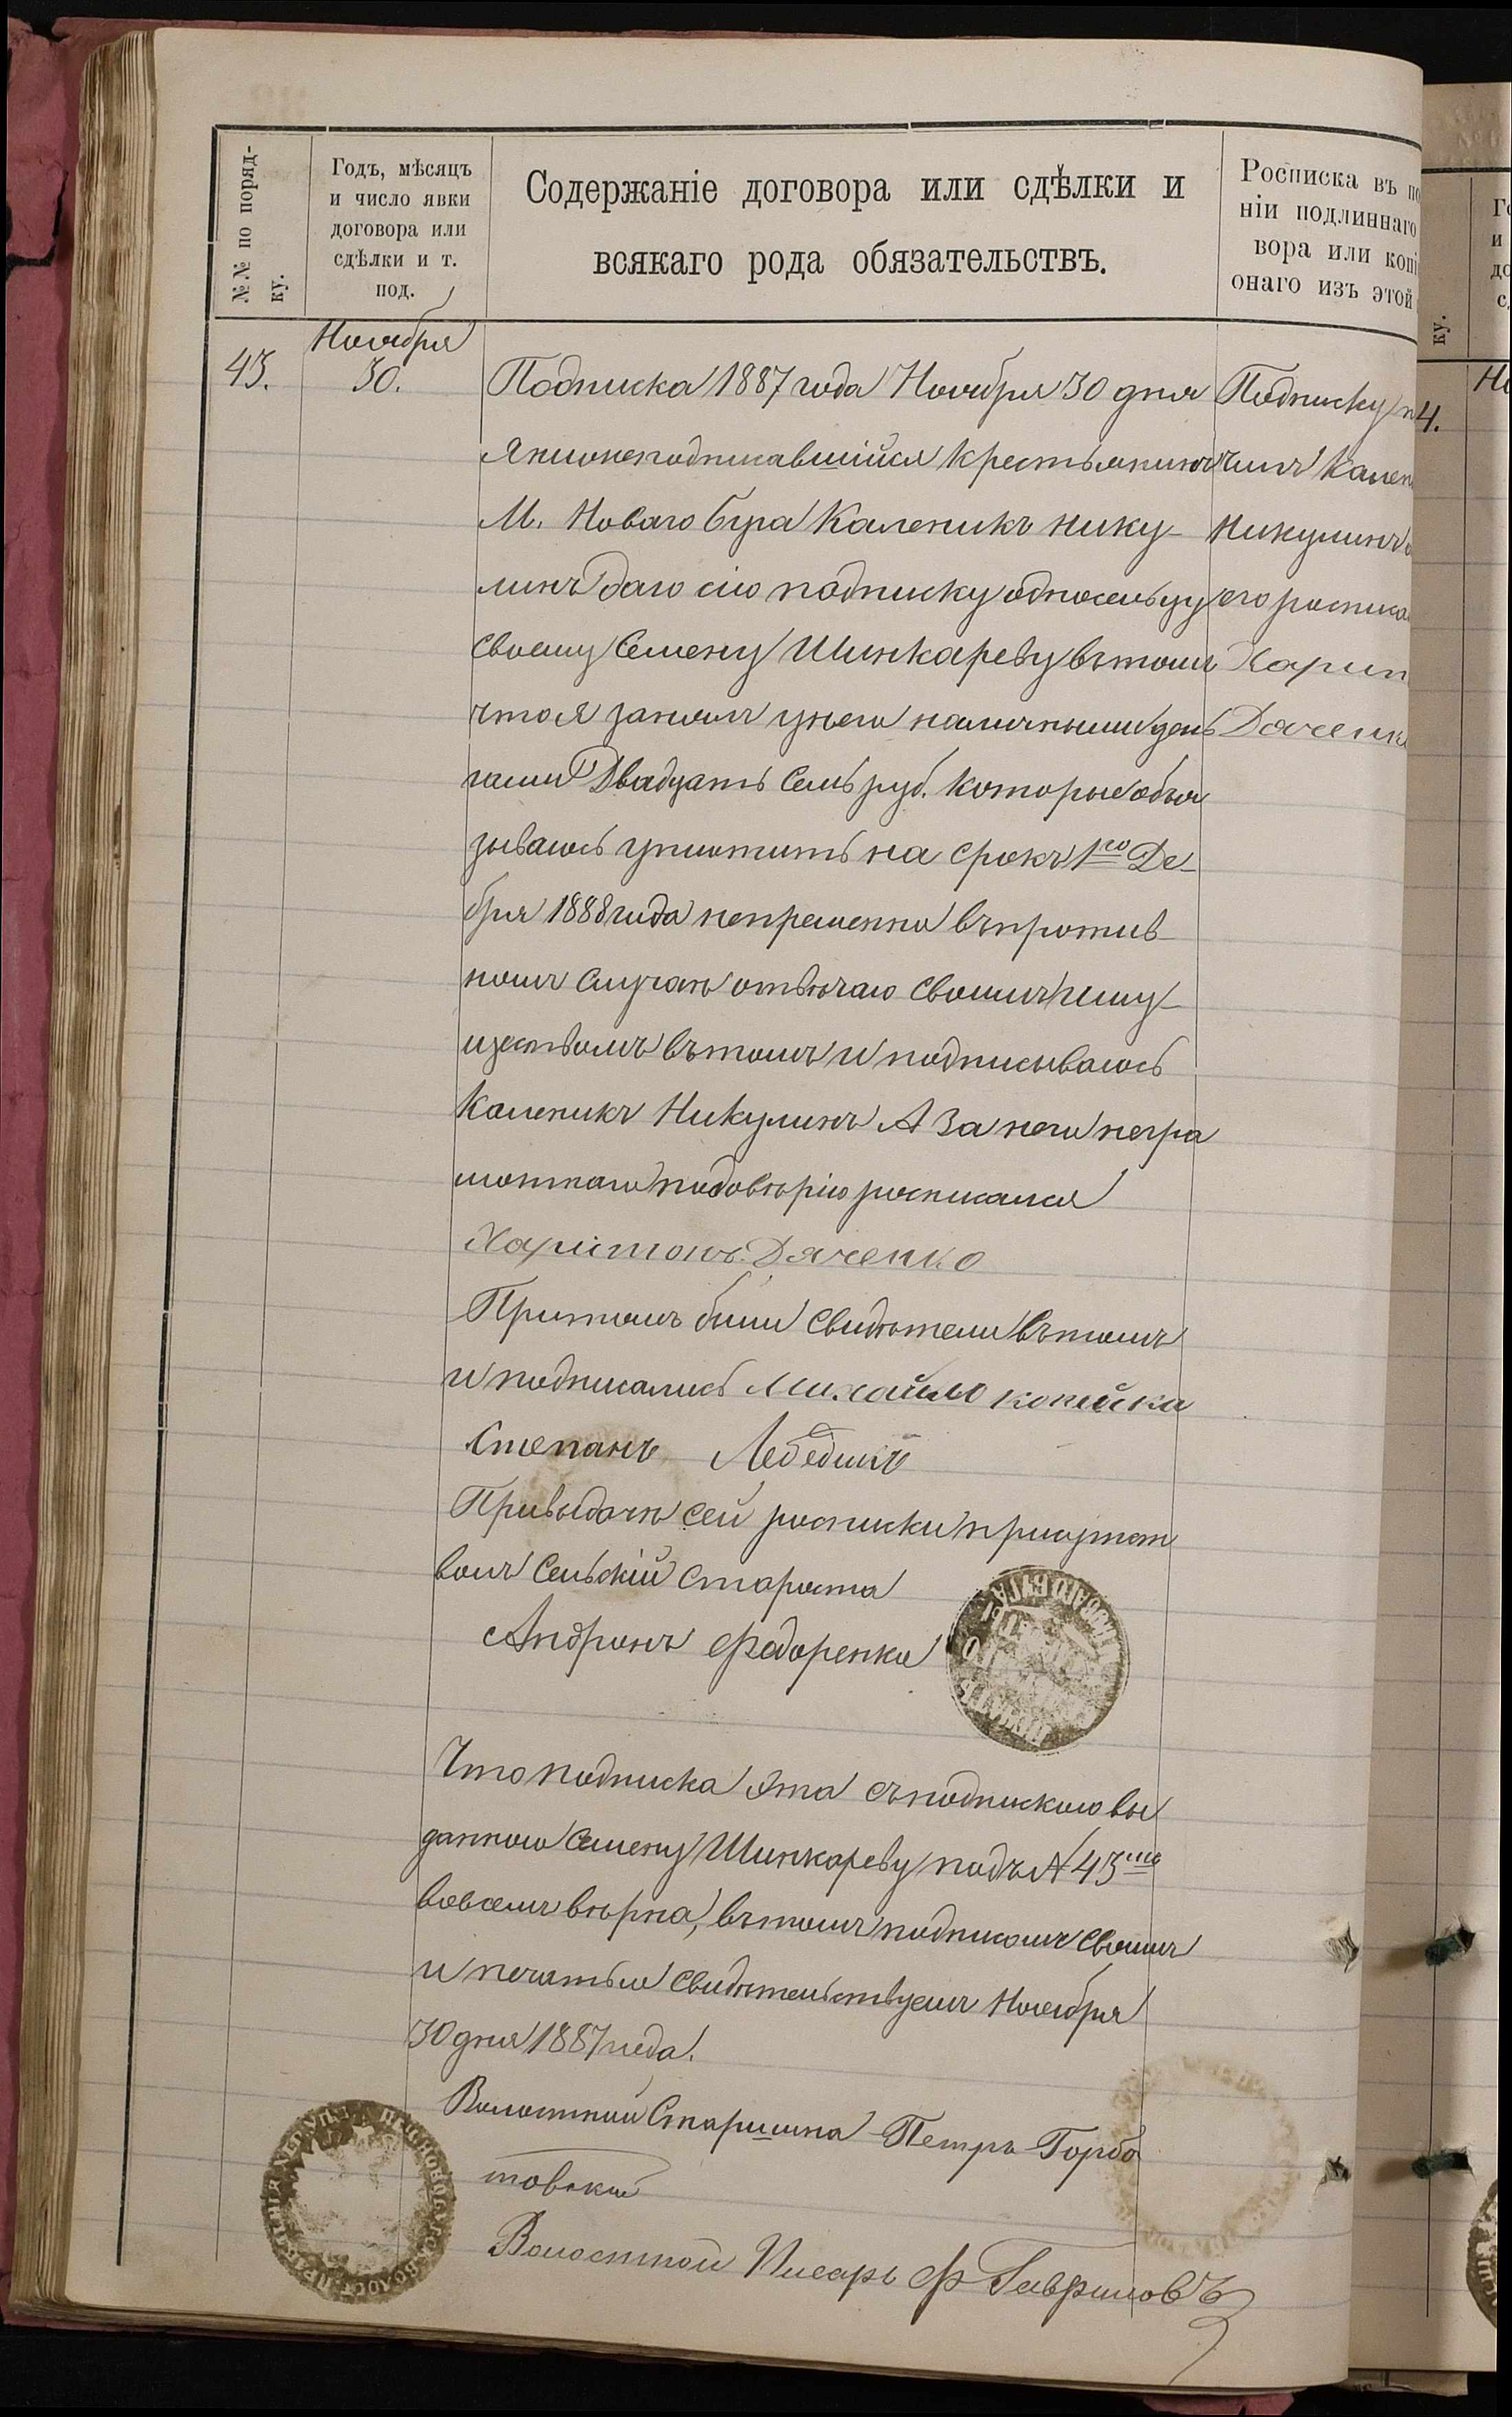 №№ по поряд-
ку.
Годъ, мѣсяцъ
и число явки
договора или
сдѣлки и т.
под.
Содержаніе договора или сдѣлки и
всякаго рода обязательствъ.
Росписка въ по
ніи подлиннаго
вора или копі
онаго изъ этой
43.
Ноября
30.
Подписка 1887 года Ноября 30 дня
Я нижеподписавшійся крестьянинъ
М. Новаго Буга Каленикъ Нику-
линъ даю сію подписку односельцу
своему Семену Шинкареву въ томъ
что я занялъ у него наличными день
гами Двадцать семь руб. которые обя
зываюсь уплотить на срокъ 1го Де-
бря 1888 года непременно въ против
номъ случаѣ отвѣчаю своимъ иму-
ществомъ въ томъ и подписываюсь
Каленикъ Никулинъ А за него негра
мотнаго по довѣрію росписался
Харитонъ Дяченко
При томъ были свидѣтели въ томъ
и подписались Михайло копейка
Степанъ Лебедикъ
При выдачѣ сей росписки присутст
вовл Сельскій Староста
Андронъ Федоренко
Что подписка эта съ подпискою вы
данною Семену Шинкареву подъ № 43мъ
во всемъ вѣрна, въ томъ подписомъ своимъ
и печатью свидѣтельствуемъ Ноября
30 дня 1887 года.
Волостной Старшина Петръ Горбо
товскій
Волостной Писарь Ф Гавриловъ
Подписку п
чилъ Кален
Никулинъ
его росписа
Харит
Дяченк
ку.
4.